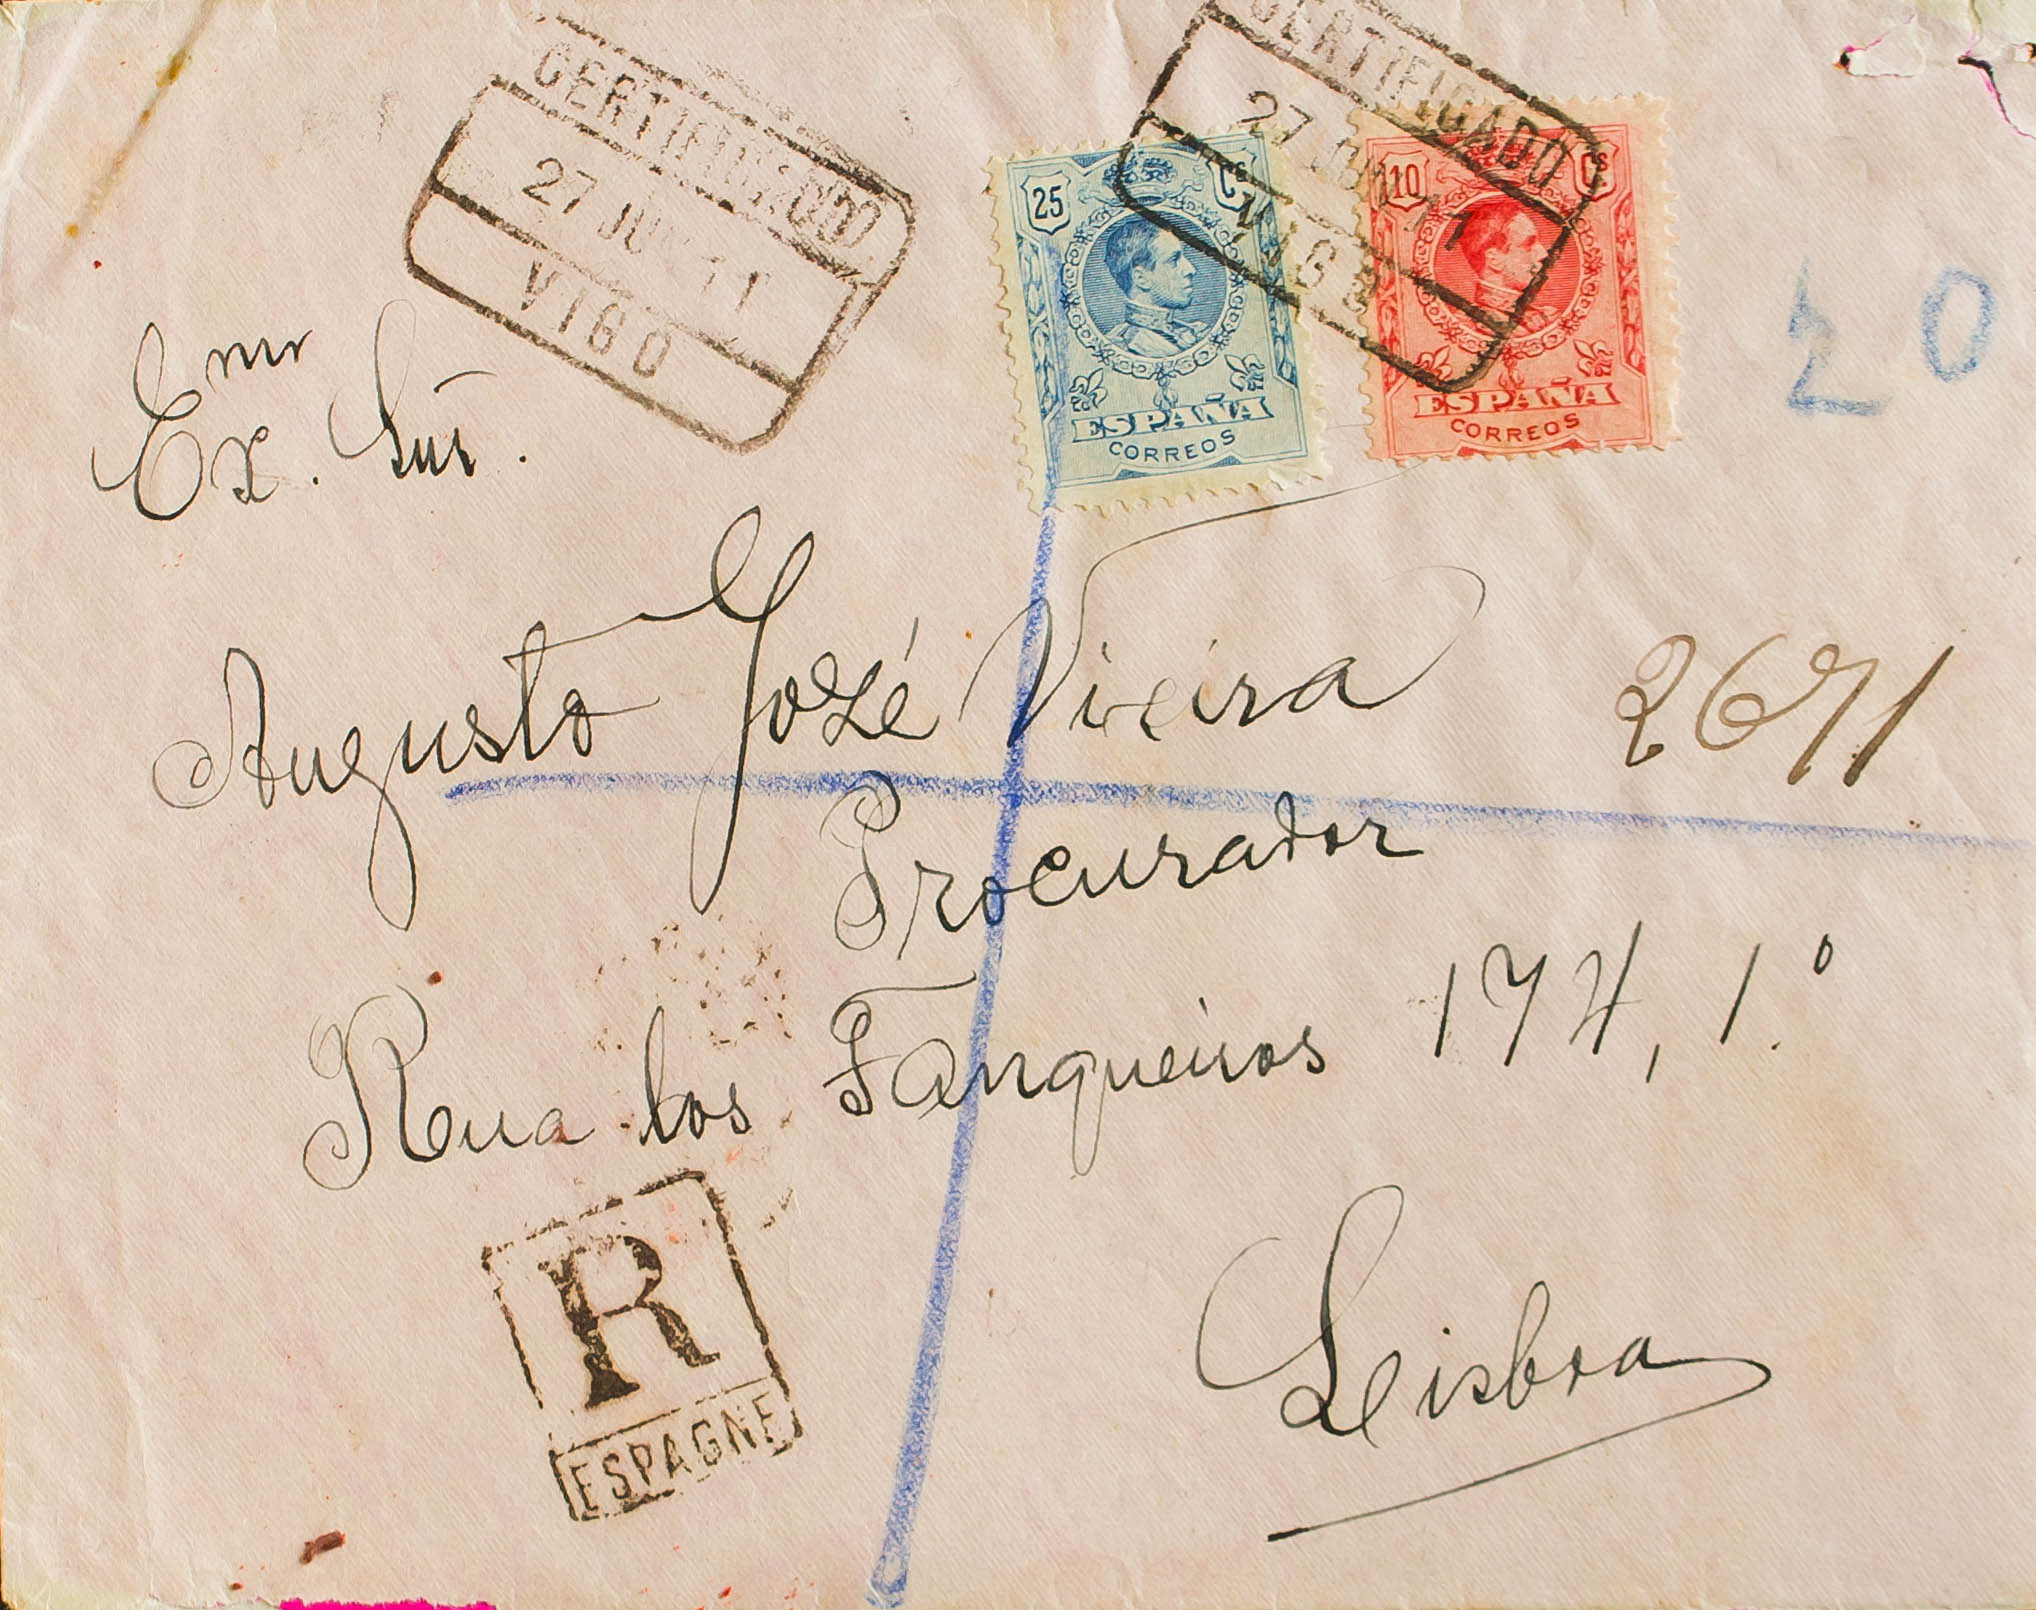 CERTIFICADO
27 JUN 11
VIGO
CERTIFICADO
27 JUN 11
VIGO
25 Cs
ESPAÑA
CORREOS
10 Cs
ESPAÑA
CORREOS
20
Emr
Ex. Snr.
Augusto Jozé Vieira
2671
Procurador
Rua dos Fanqueiros 174, 1.º
Lisboa
R
ESPAGNE